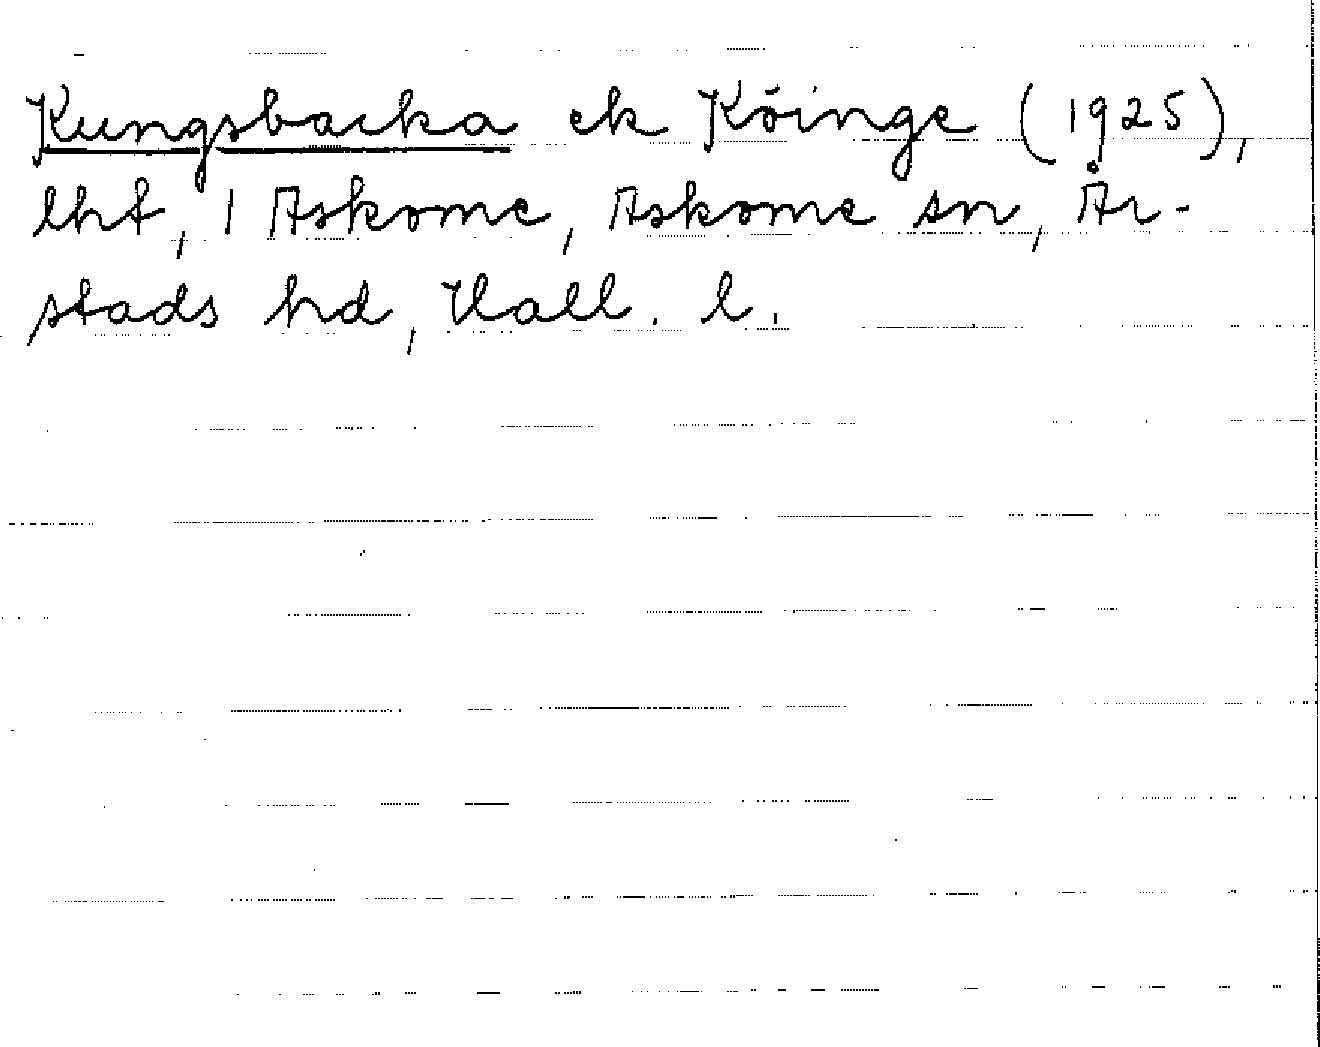 Kungsbacka ek Köinge (1925),
lht, 1 Askome, Askome sn, År-
stads hd, Hall. l.